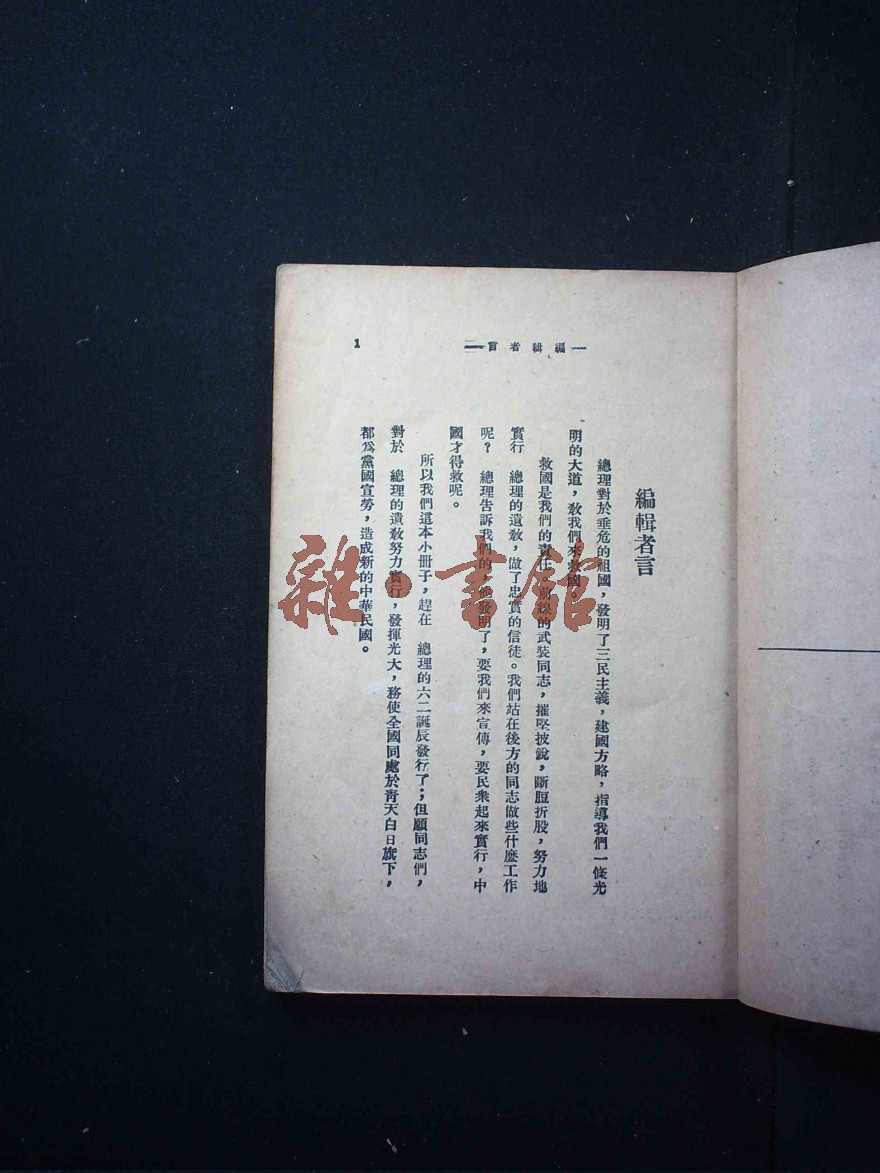 編輯者言
1
編輯者言
總理對於垂危的祖國，發明了三民主義，建國方略，指導我們一條光
明的大道，敎我們來救國。
救國是我們的責任，前線的武裝同志，摧堅披銳，斷脰折股，努力地
實行　總理的遺敎，做了忠實的信徒。我們站在後方的同志做些什麼工作
呢？　總理告訴我們的，他發明了，要我們來宣傳，要民衆起來實行，中
國才得救呢。
所以我們這本小冊子，趕在　總理的六二誕辰發行了；但願同志們，
對於　總理的遺敎努力實行，發揮光大，務使全國同處於靑天白日旗下，
都爲黨國宣勞，造成新的中華民國。
雜·書館